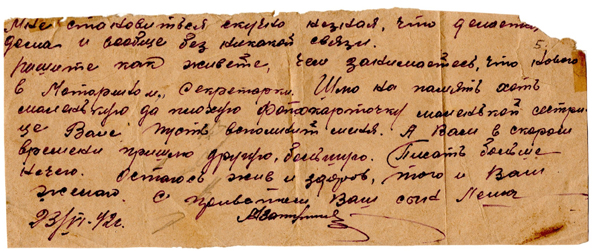 Мне становиться скучно незная, что делается
дома и вообще без никакой связи.
5.
решите как живете, чем занимаетесь, что нового
в Секретарки. Шлю на память хоть
маленькую да плохую фотокарточку маленькой сестри-
це Вале пусть вспоминает меня. А Вам в скаром
времени пришлю другую, большую. Писать больше
нечего. Остаюсь жив и здоров, того и Вам
желаю. С приветом Ваш сын Лёнька
23/VI-42г.